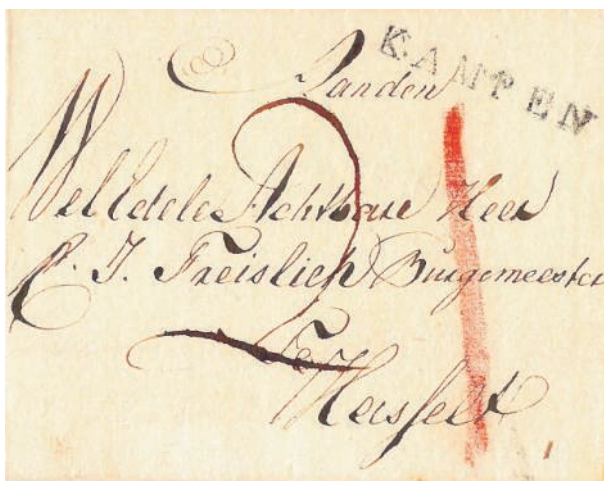 KAMPEN
Aanden
2
Wel Edele Achtbare Heer
J. Freislich Burgemeester
Te
Hasselt